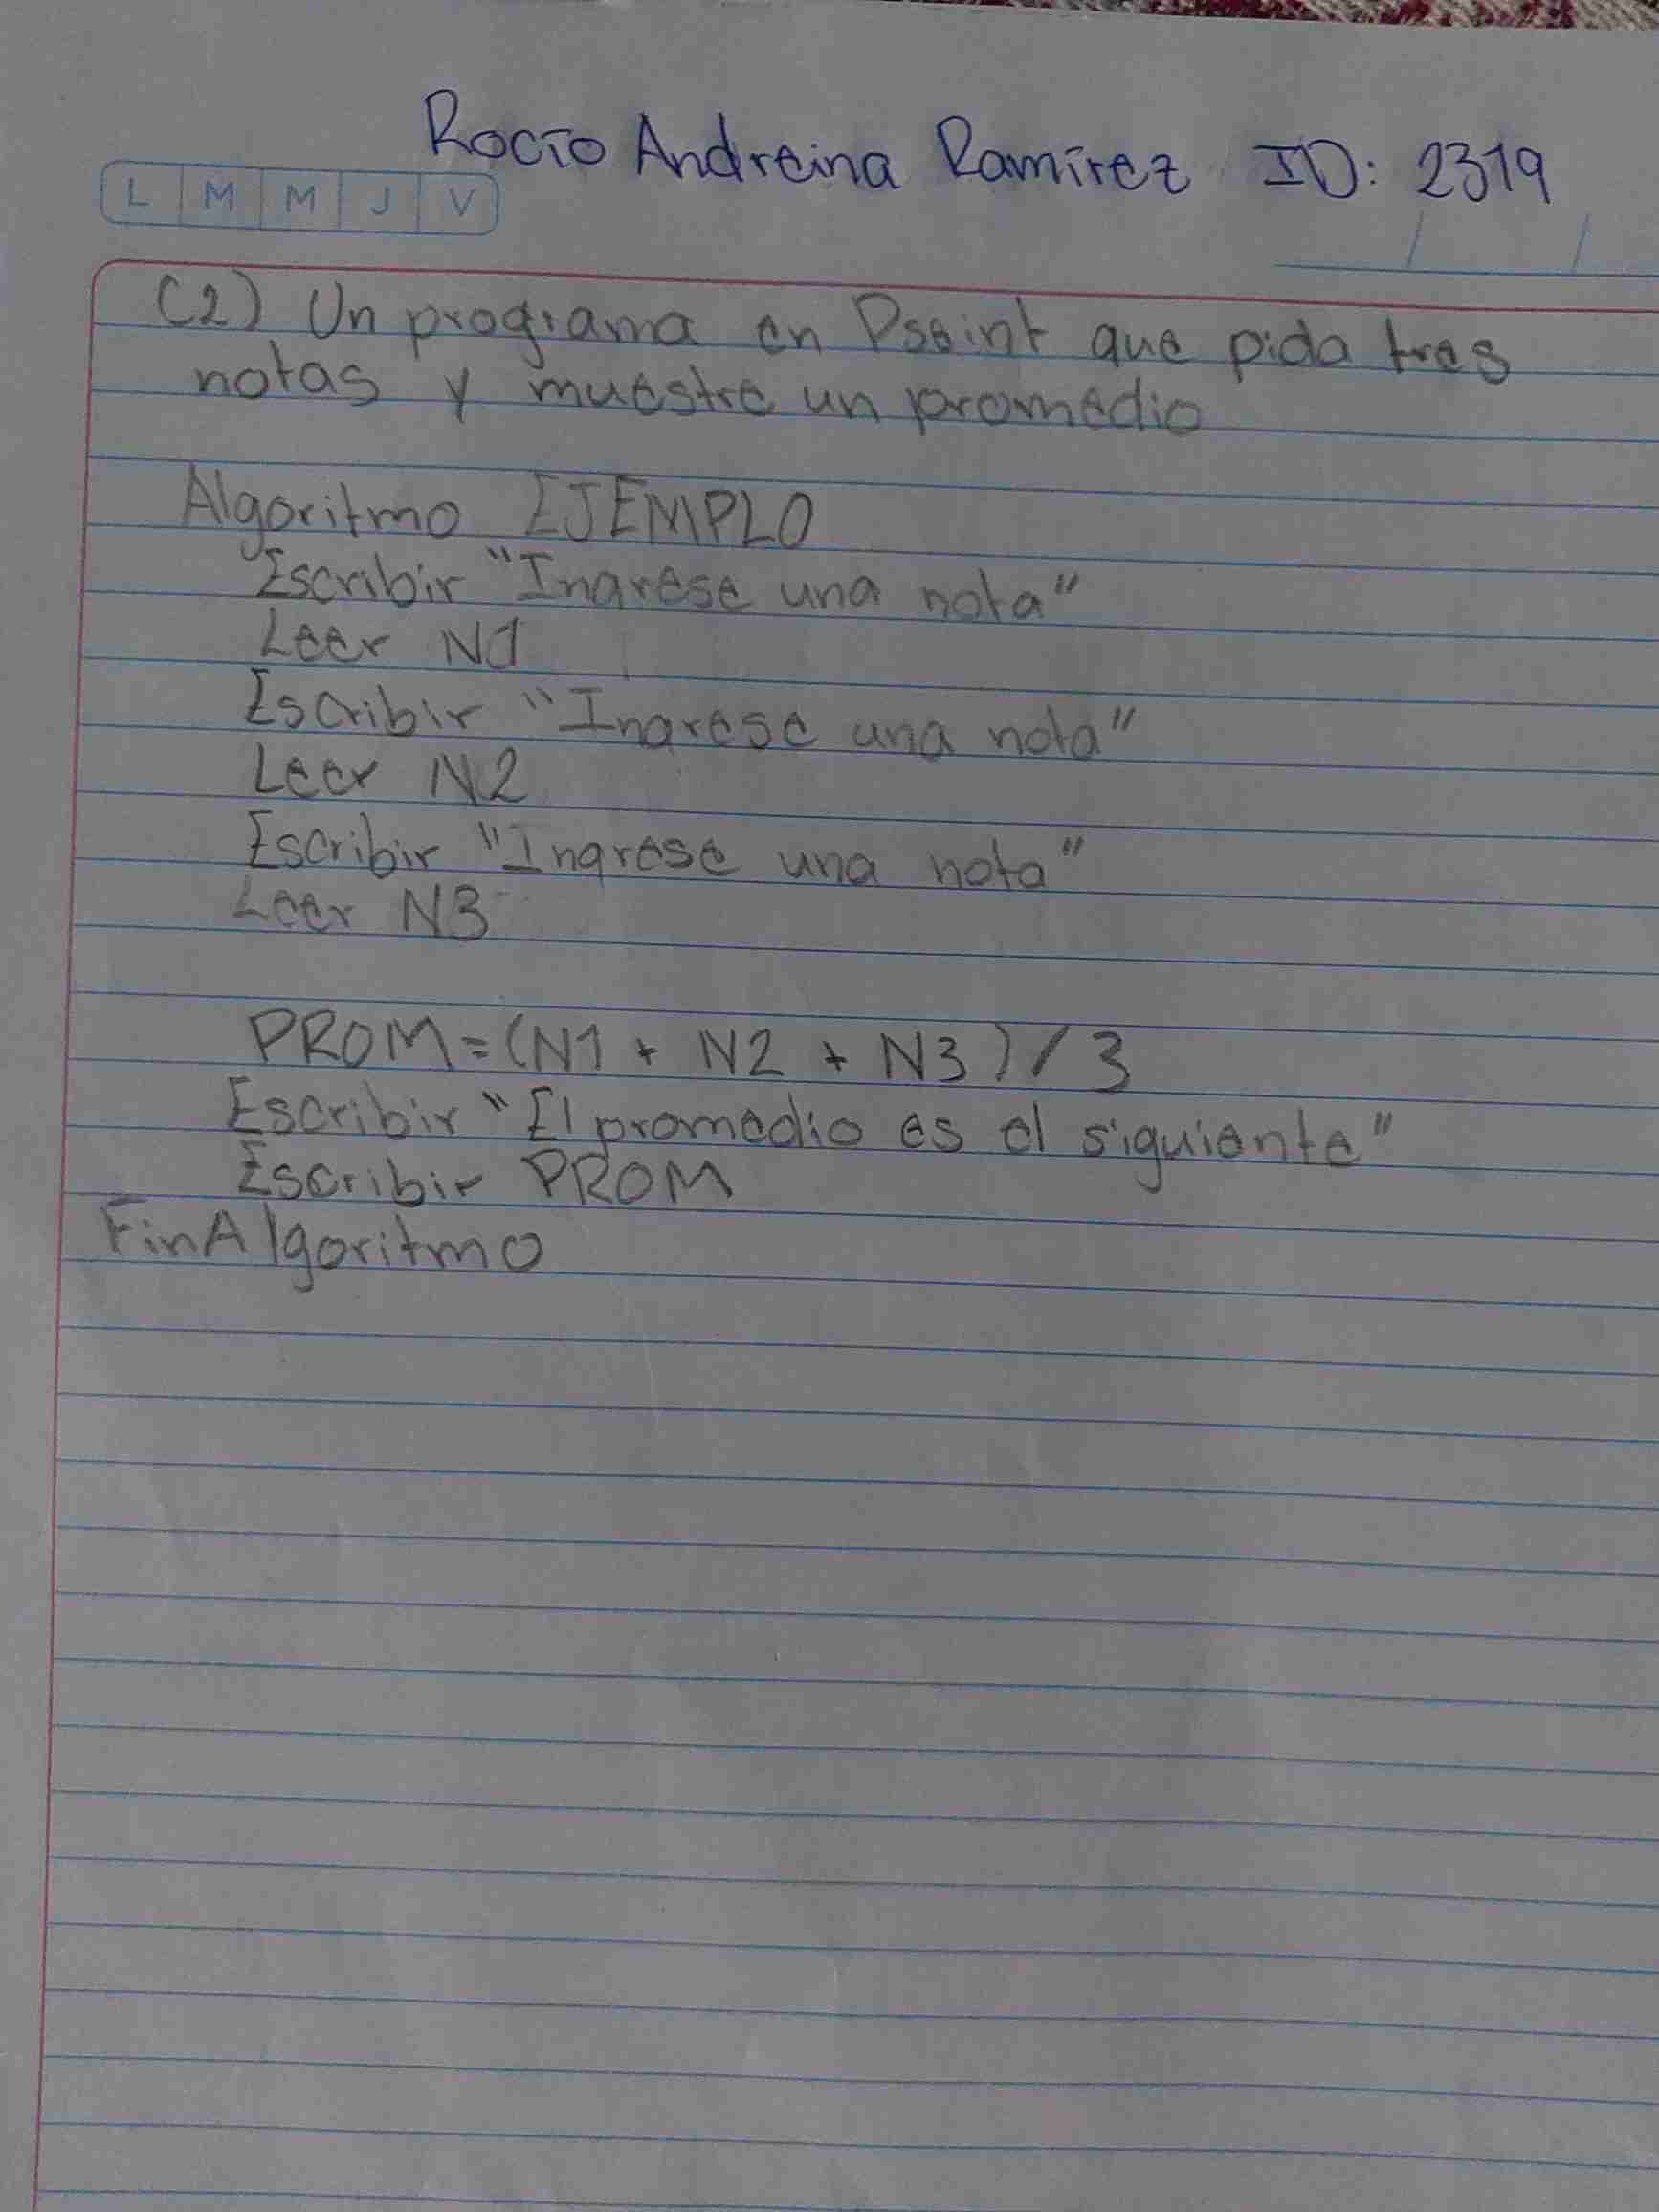 Rocío Andreina Ramírez ID: 2319
L M M J V
/ /
(2) Un programa en Pseint que pida tres
notas y muestre un promedio
Algoritmo EJEMPLO
Escribir "Ingrese una nota"
Leer N1
Escribir "Ingrese una nota"
Leer N2
Escribir "Ingrese una nota"
Leer N3
PROM=(N1 + N2 + N3)/3
Escribir "El promedio es el siguiente"
Escribir PROM
FinAlgoritmo